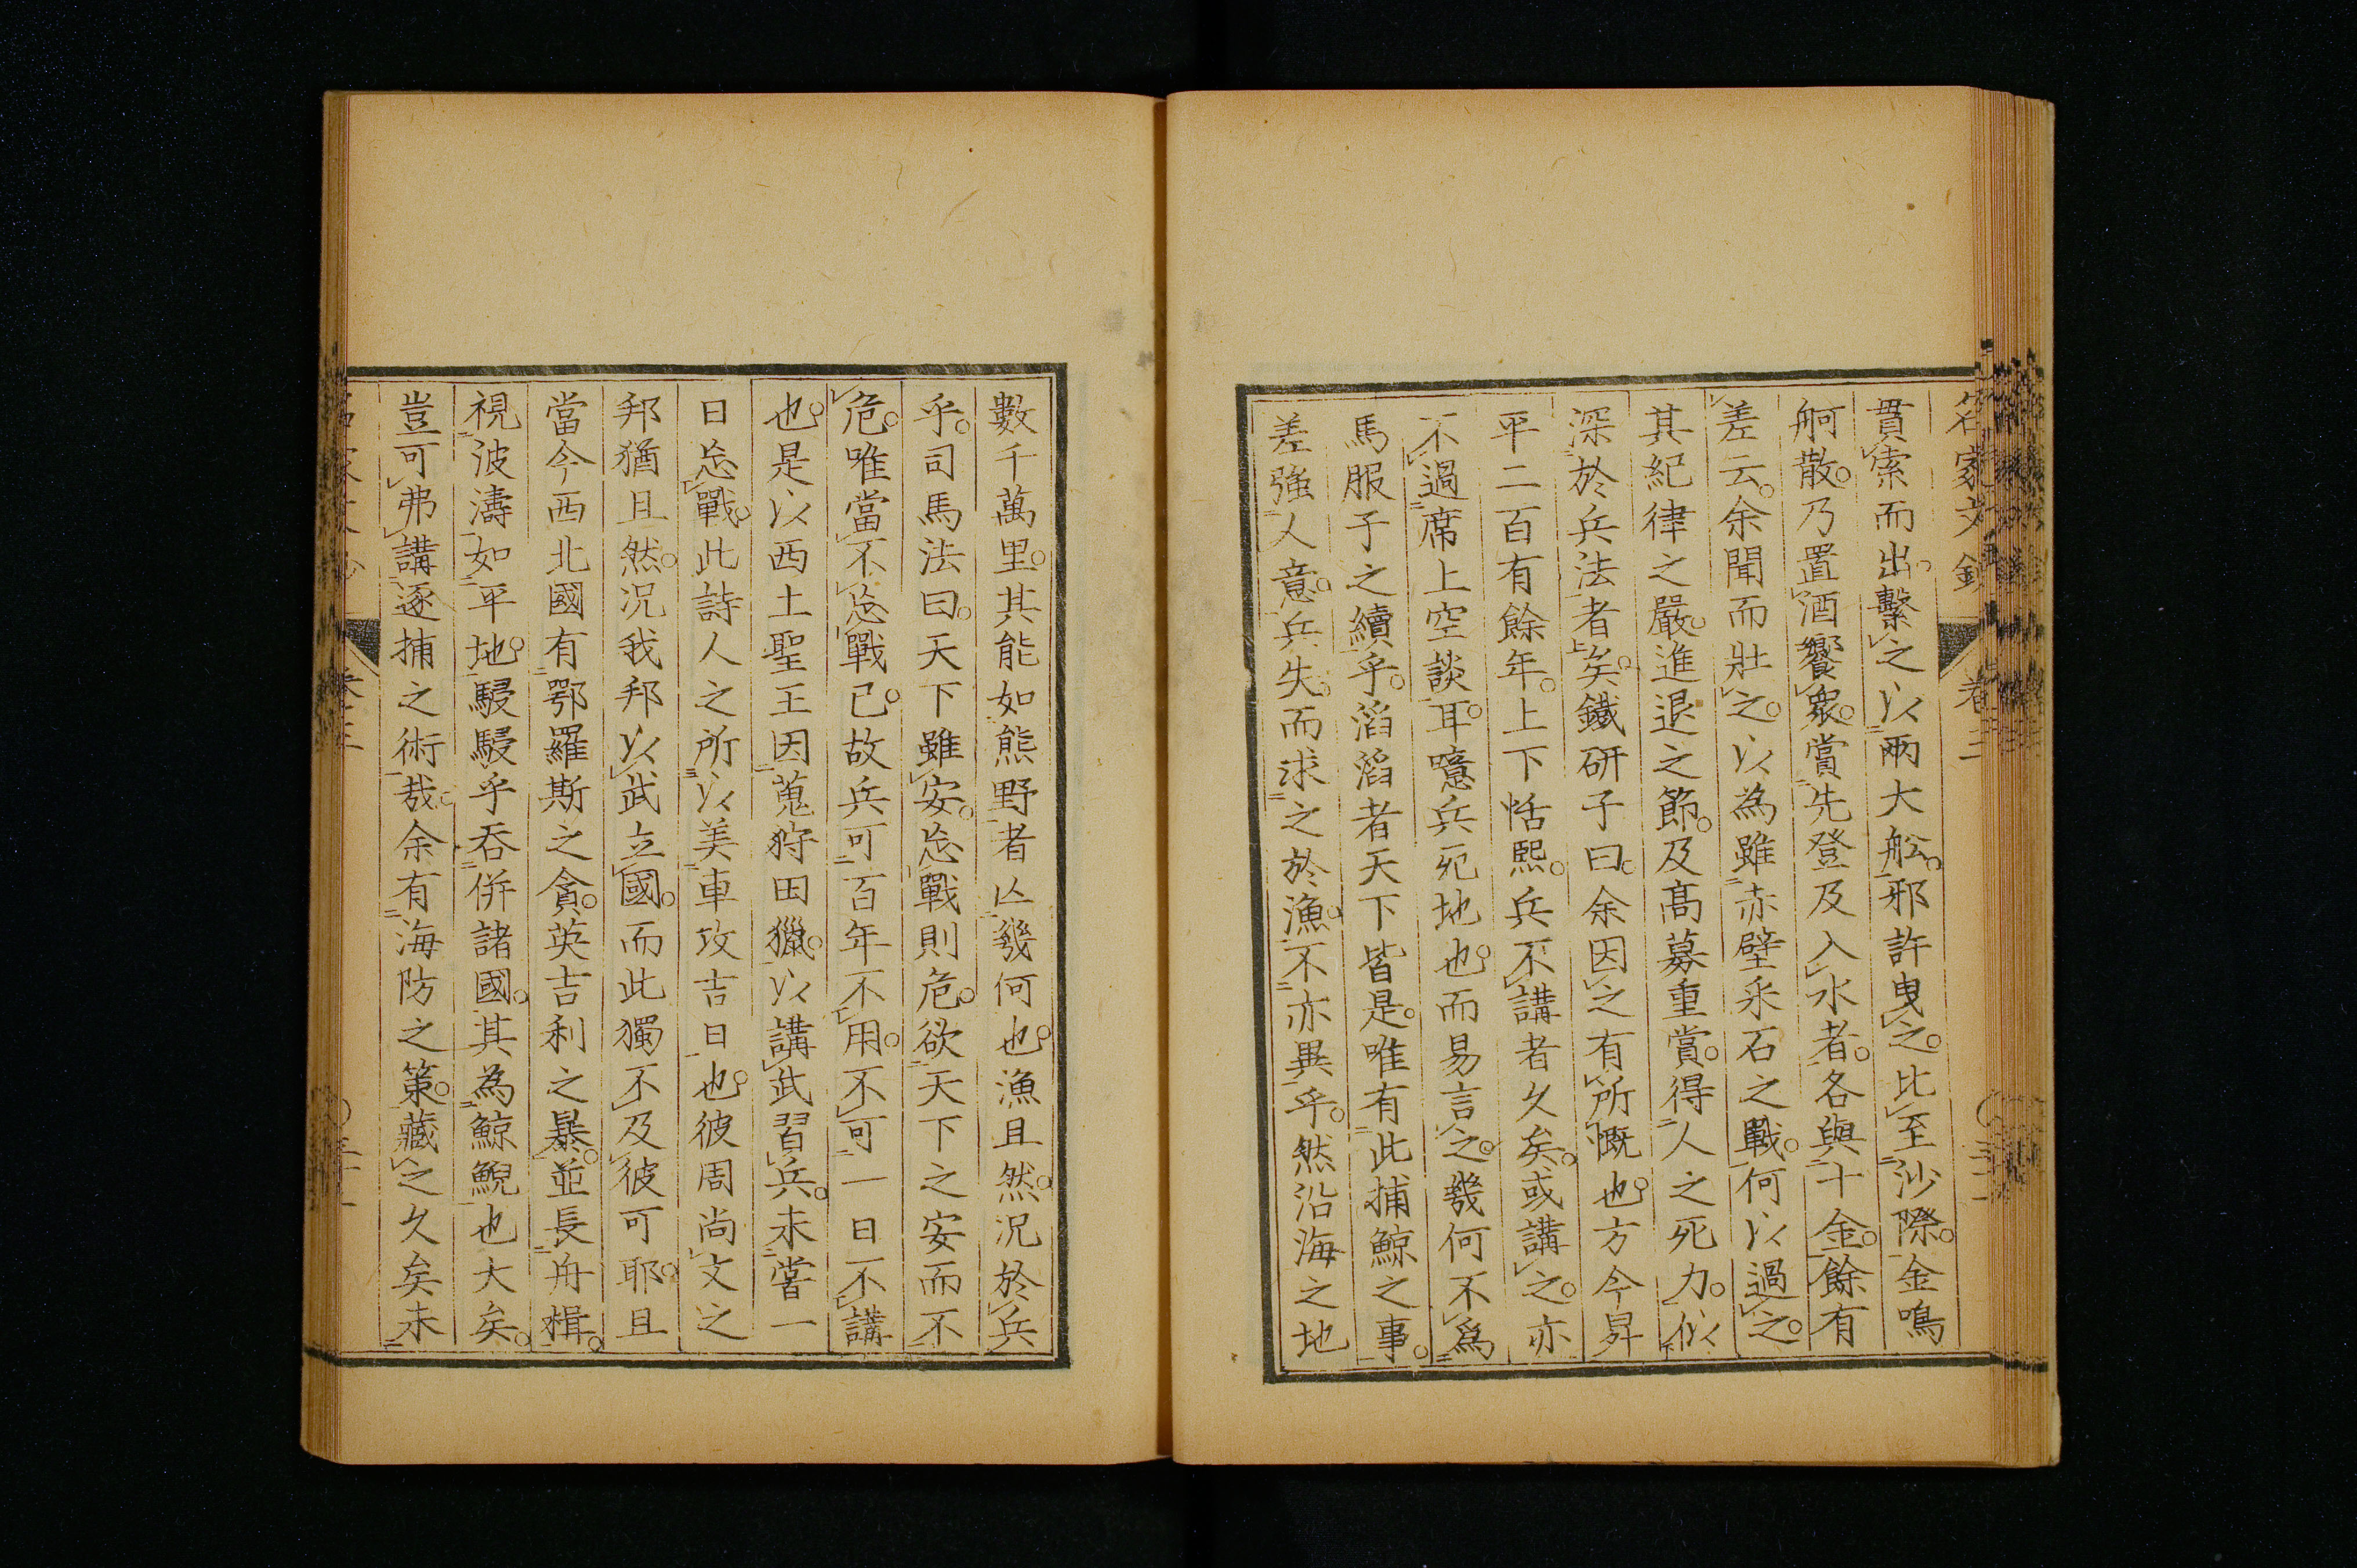 名家文鈔
卷三
貫索而出。繫之以兩大舩。邪許曳之。比至沙際。金鳴
舸散。乃置酒饗衆。賞先登及入水者。各與十金。餘有
差云。余聞而壯之。以為雖赤壁采石之戰。何以過之。
其紀律之嚴。進退之節。及髙募重賞。得人之死力。似
深於兵法者矣。鐵研子曰。余因之有所慨也。方今昇
平二百有餘年。上下恬熙。兵不講者久矣。或講之。亦
不過席上空談耳。噫兵死地也。而易言之。幾何不爲
馬服子之續乎。滔滔者天下皆是。唯有此捕鯨之事。
差強人意。兵失。而求之於漁。不亦異乎。然沿海之地
數千萬里。其能如熊野者亾幾何也。漁且然。況於兵
乎。司馬法曰。天下雖安。忘戰則危。欲天下之安而不
危。唯當不忘戰已。故兵可百年不用。不可一日不講
也。是以西土聖王因蒐狩田獵。以講武習兵。未嘗一
日忘戰。此詩人之所以美車攻吉日也。彼周尚文之
邦猶且然。況我邦以武立國。而此獨不及彼可耶。且
當今西北國有鄂羅斯之貪。英吉利之暴。並長舟楫。
視波濤如平地。駸駸乎吞併諸國。其為鯨鯢也大矣。
豈可弗講逐捕之術哉。余有海防之策。藏之久矣未